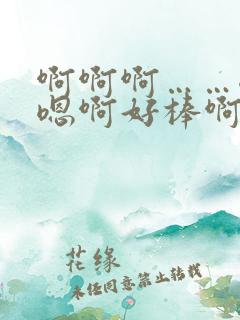 啊啊啊……
嗯啊好棒啊
花缘
未经同意禁止转载